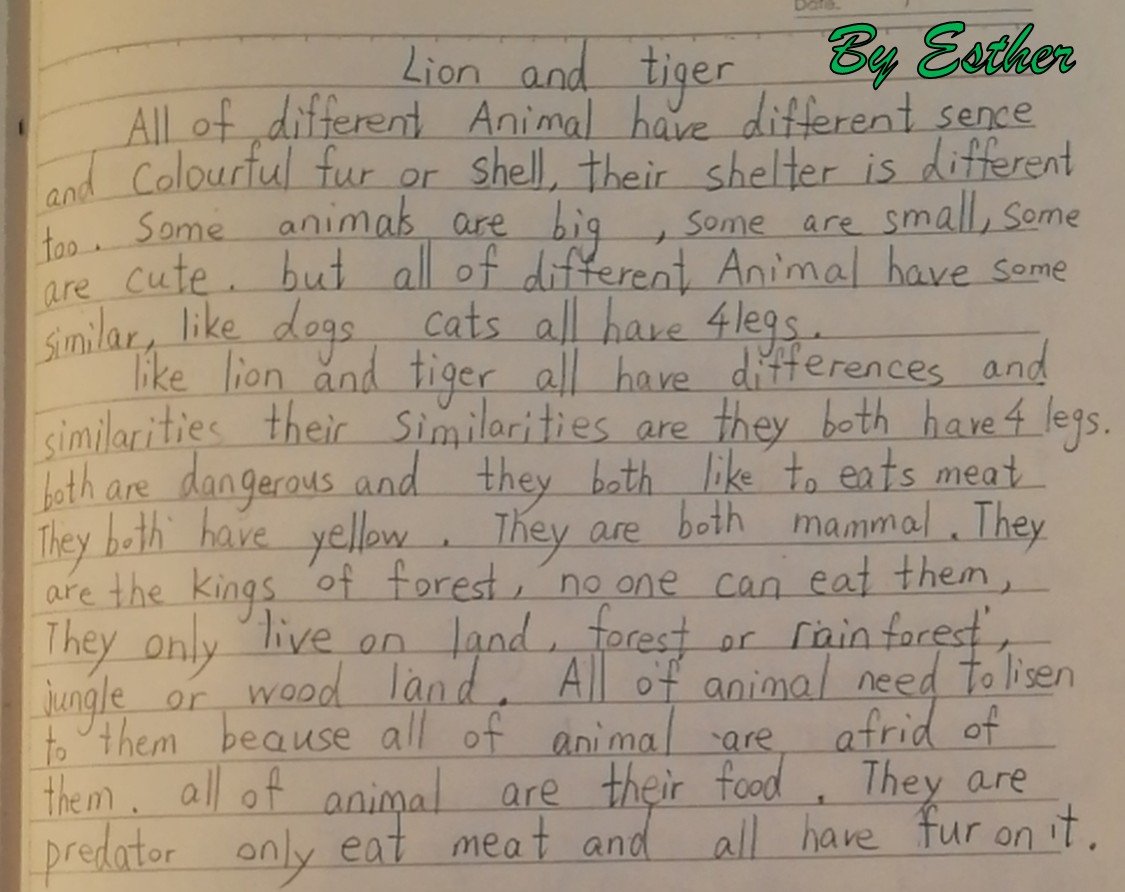 Date.
By Esther
Lion and tiger
All of different Animal have different sence
and Colourful fur or shell, their shelter is different
too. Some animals are big , some are small, some
are cute. but all of different Animal have some
similar, like dogs cats all have 4 legs.
like lion and tiger all have differences and
similarities their Similarities are they both have 4 legs.
both are dangerous and they both like to eats meat
They both have yellow . They are both mammal. They
are the kings of forest, no one can eat them,
They only live on land, forest or rainforest,
jungle or wood land. All of animal need to lisen
to them beause all of animal are afrid of
them. all of animal are their food . They are
predator only eat meat and all have fur on it.